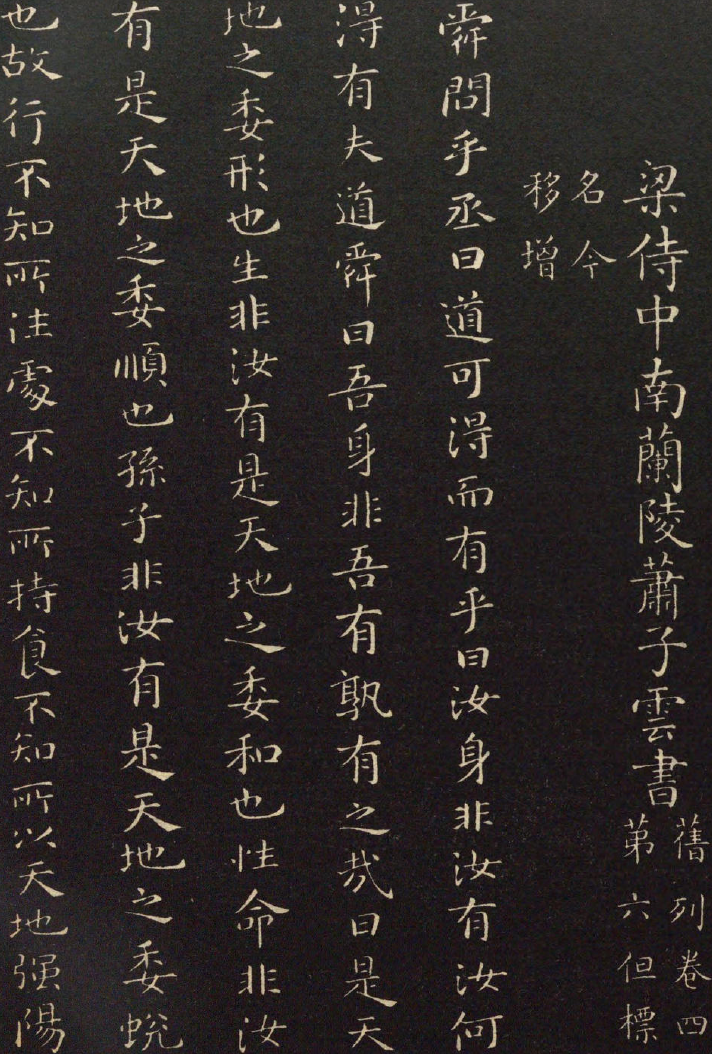 梁侍中南蘭陵蕭子雲書
舊列卷四
第六但標
名今
移增
舜問乎丞曰道可淂而有乎曰汝身非汝有汝何
淂有夫道舜曰吾身非吾有孰有之㢤曰是天
地之委形也生非汝有是天地之委和也性命非汝
有是天地之委順也孫子非汝有是天地之委蛻
也故行不知所注處不知所持食不知所以天地强陽